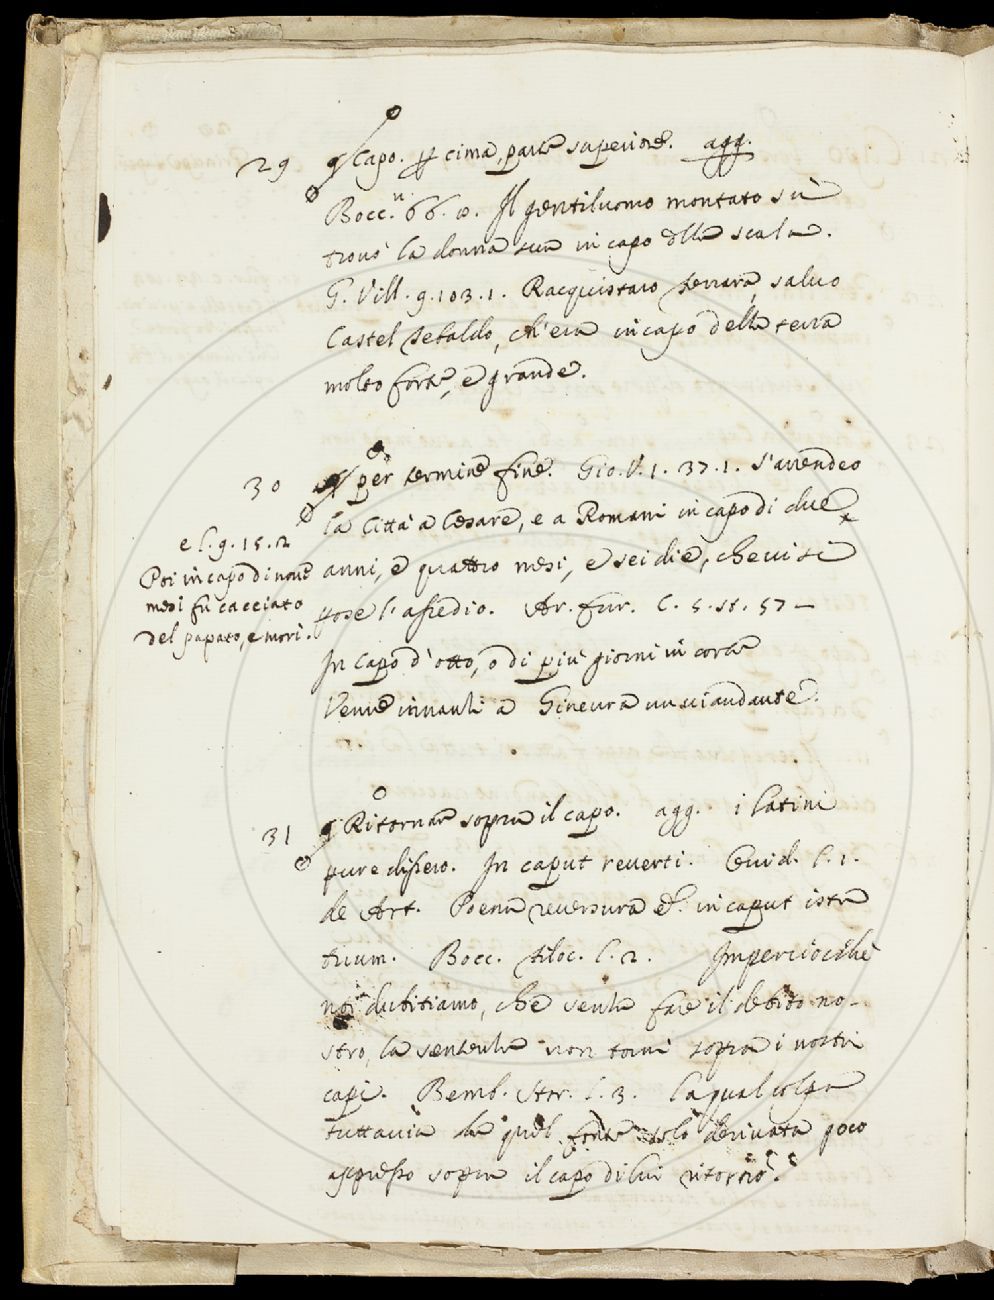 29 Capo. per cima, parte superiore. agg.
Bocc. n. 66. 8. Il gentiluomo montato sù
trovò la donna sua in capo della scala.
G. Vill. 9. 103. 1. Racquistaro Ferrara, salvo
Castel Tebaldo, ch'era in capo della terra
molto forte, e grande.
30 per termine fine. Gio. V. 1. 37. 1. s'arrendeo
la Città a Cesare, e a Romani in capo di due
anni, e quattro mesi, e sei die, che vi si
pose l'assedio. Ar. fur. C. 5. st. 57 —
In capo d'otto, o di più giorni in corte
Venne innanti a Ginevra un viandante.
e l. 9. 15. 2
Poi in capo di nove
mesi fu cacciato
del papato, e morì.
31 Ritornar sopra il capo. agg. i latini
pure dissero. In caput reverti. Ovid. l. 1.
de Art. Poena reversura est in caput ista
tuum. Bocc. filoc. l. 2. Imperciocchè
noi dubitiamo, che senza fare il debito no-
stro, la sentenza non torni sopra i nostri
capi. Bemb. Stor. l. 3. la qual colpa
tuttavia da quel fonte solo derivata poco
appresso sopra il capo di lui ritornò.